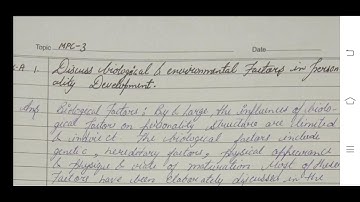 Topic MPC-3 Date
Q.A 1. Discuss biological & environmental Factors in person
ality Development.
Ans Biological Factors; By & large, the influences of biolo-
gical Factors on personality structure are limited
& indirect. The biological factors include
genetic, hereditary factors, physical appearance
& physique & rate of maturation. Most of these
Factors have been elaborately discussed in the